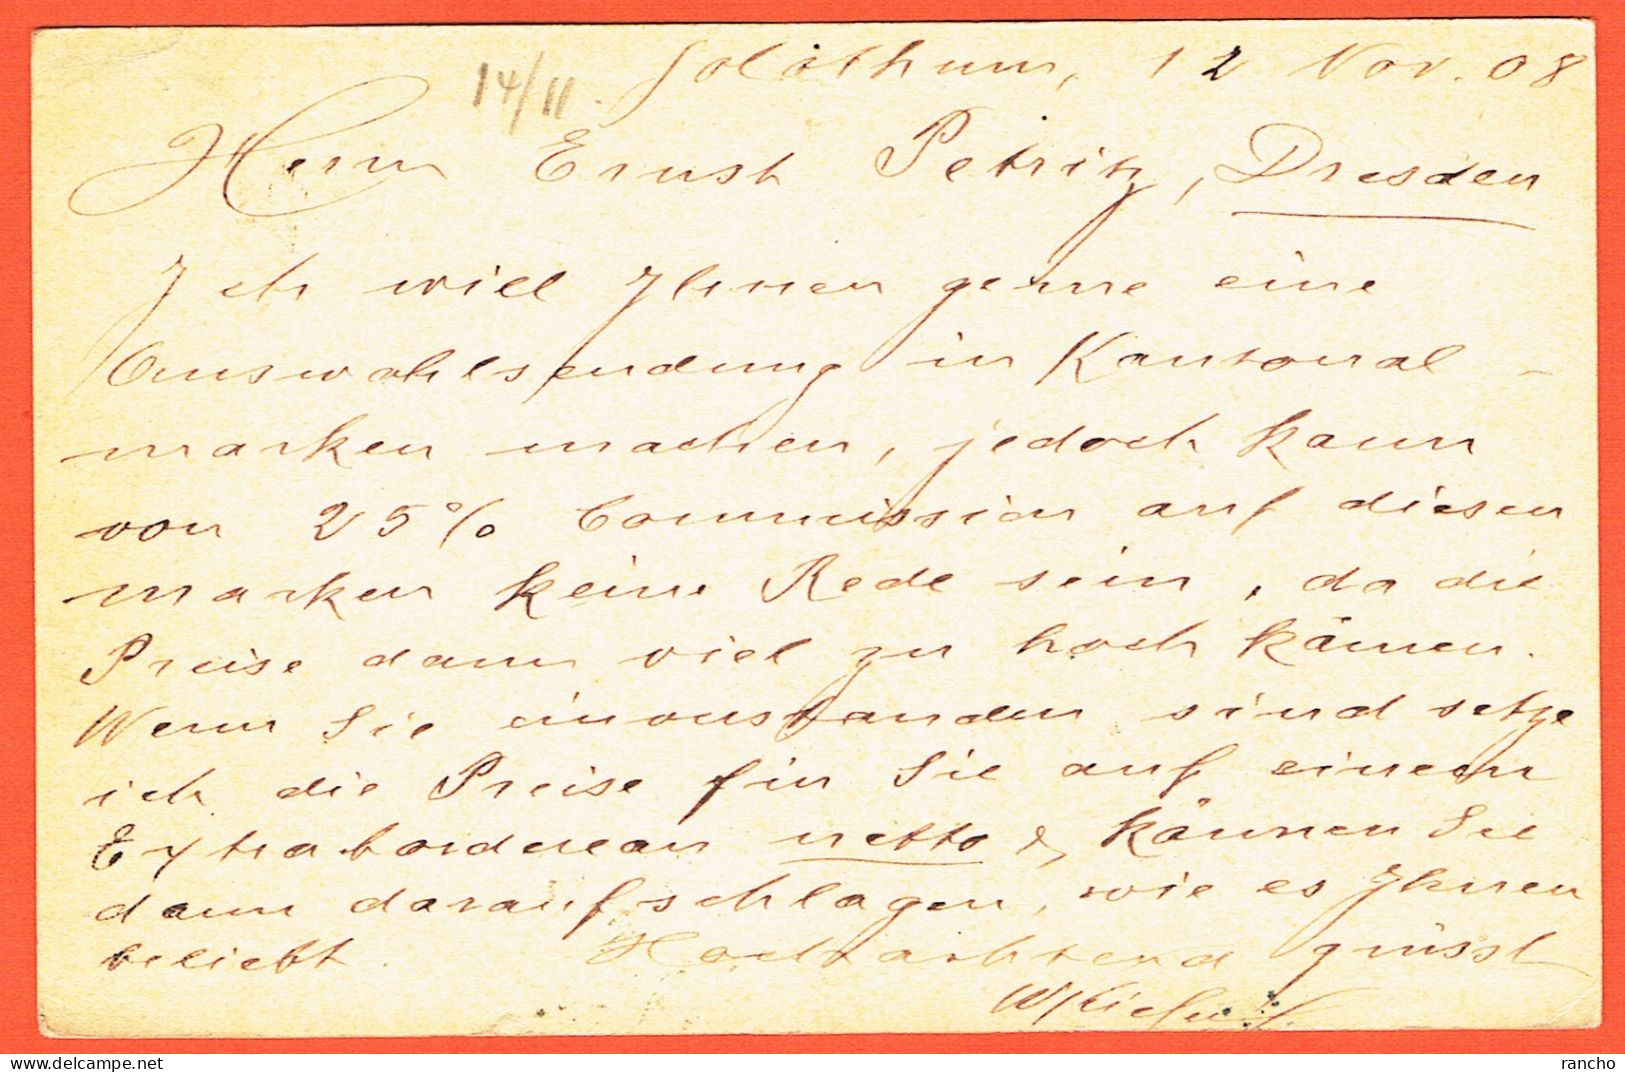 14/11. Solothurn, 12 Nov. 08
Herrn Ernst Petritz, Dresden
Ich will Ihnen gerne eine
Auswahlsendung in Kantonal-
marken machen, jedoch kann
von 25% Commission auf diesen
marken keine Rede sein, da die
Preise dann viel zu hoch kämen.
Wenn Sie einverstanden sind setze
ich die Preise für Sie auf einem
Extrabordereau netto & können Sie
dann daraufschlagen, wie es Ihnen
beliebt. Hochachtend grüsst
rancho